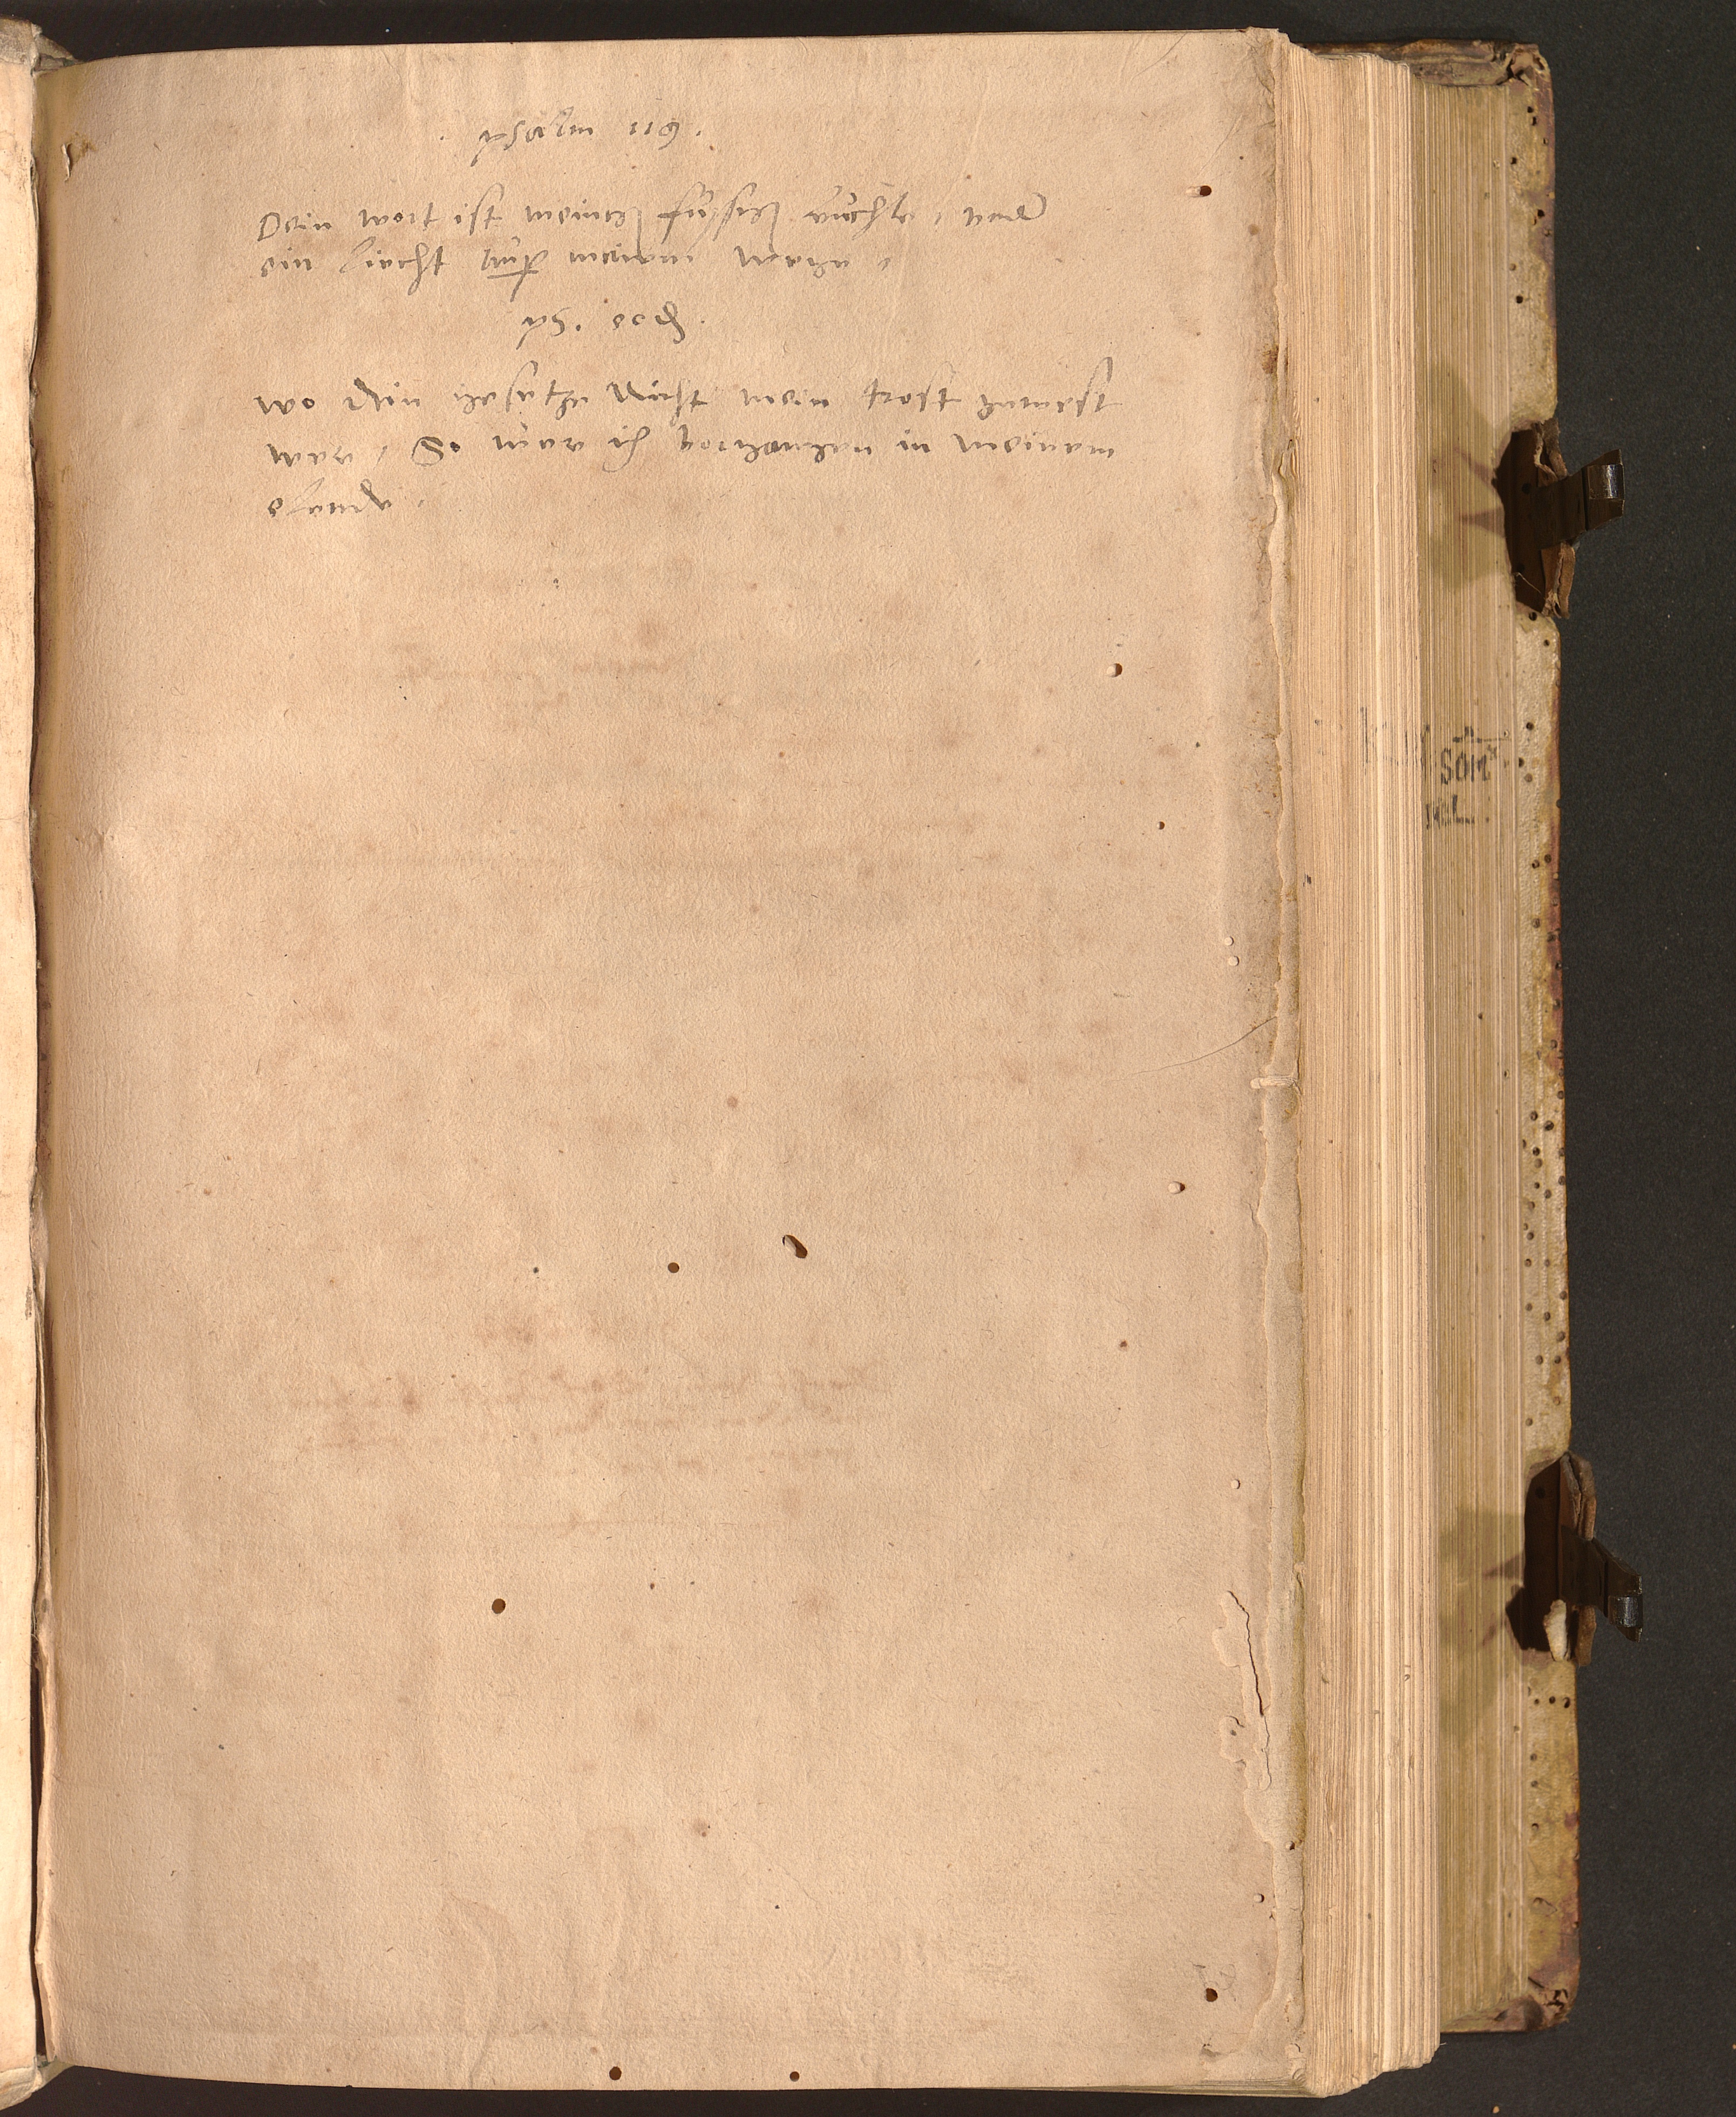 . psalm 119 .
Dein wort ist meiner fussen leuchte / vnd
ein liecht auf meinem wege /
ps. eod.
wo dein gesetze nicht mein trost gwest
were / So were ich vorgangen in meinem
elende .
SOM